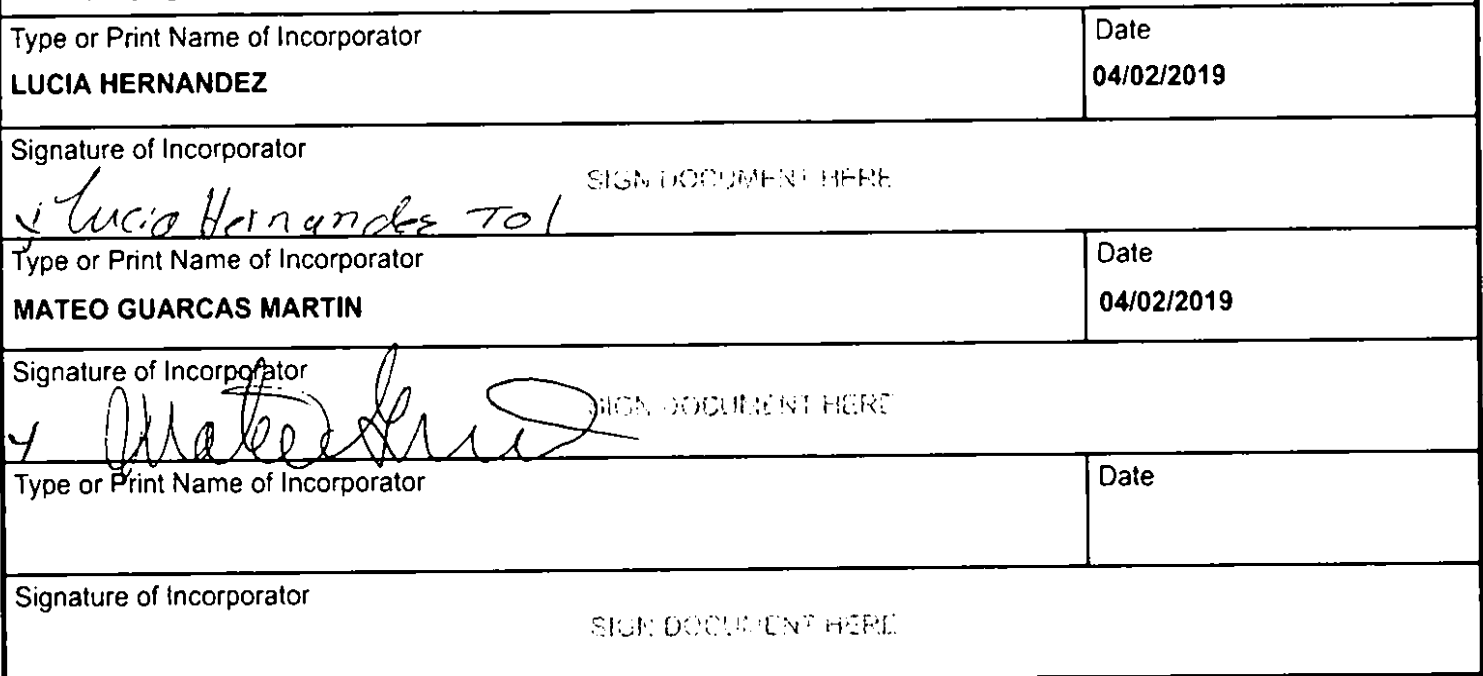 Type or Print Name of Incorporator
Date
LUCIA HERNANDEZ
04/02/2019
Signature of Incorporator
SIGN DOCUMENT HERE
x Lucia Hernandez Tol
Type or Print Name of Incorporator
Date
MATEO GUARCAS MARTIN
04/02/2019
Signature of Incorporator
SIGN DOCUMENT HERE
x Mateo
Type or Print Name of Incorporator
Date
Signature of Incorporator
SIGN DOCUMENT HERE